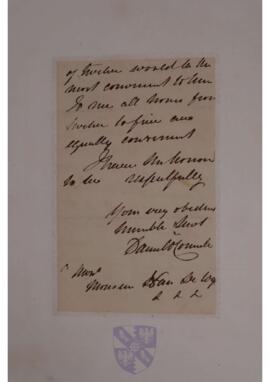 of twelve would be the
most convenient to him
To me all hours from
twelve to five are
equally convenient
I have the honor
to be respectfully
Your very obedient
humble Servt
Daniel O'Connell
Monsieur Van De
& & &